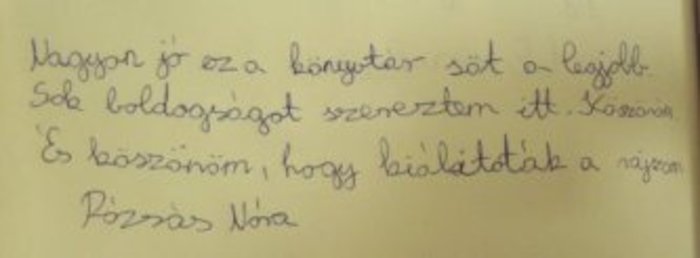 Nagyon jó ez a könyvtár sőt a legjobb
Sok boldogságot szereztem itt. Köszönöm
És köszönöm, hogy kiálátoták a rajzom
Rózsás Nóra